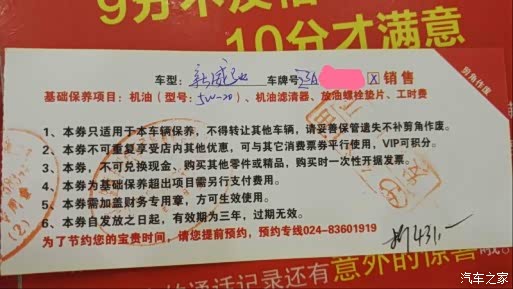 10分才满意
车型：新威驰 车牌号 辽A X 销售
剪角作废
基础保养项目：机油（型号：5W-20）、机油滤清器、放油螺栓垫片、工时费
1、本券只适用于本车辆保养，不得转让其他车辆，请妥善保管遗失不补剪角作废。
2、本券不可重复享受店内其他优惠，可与其它消费票券平行使用，VIP可积分。
3、本券，不可兑换现金、购买其他零件或精品，购买时一次性开据发票。
4、本券为基础保养超出项目需另行支付费用。
5、本券需加盖财务专用章，方可生效使用。
6、本券自发放之日起，有效期为三年，过期无效。
为了节约您的宝贵时间，请您提前预约，预约专线024-83601919
431.-
的通话记录还有意外的惊喜
汽车之家